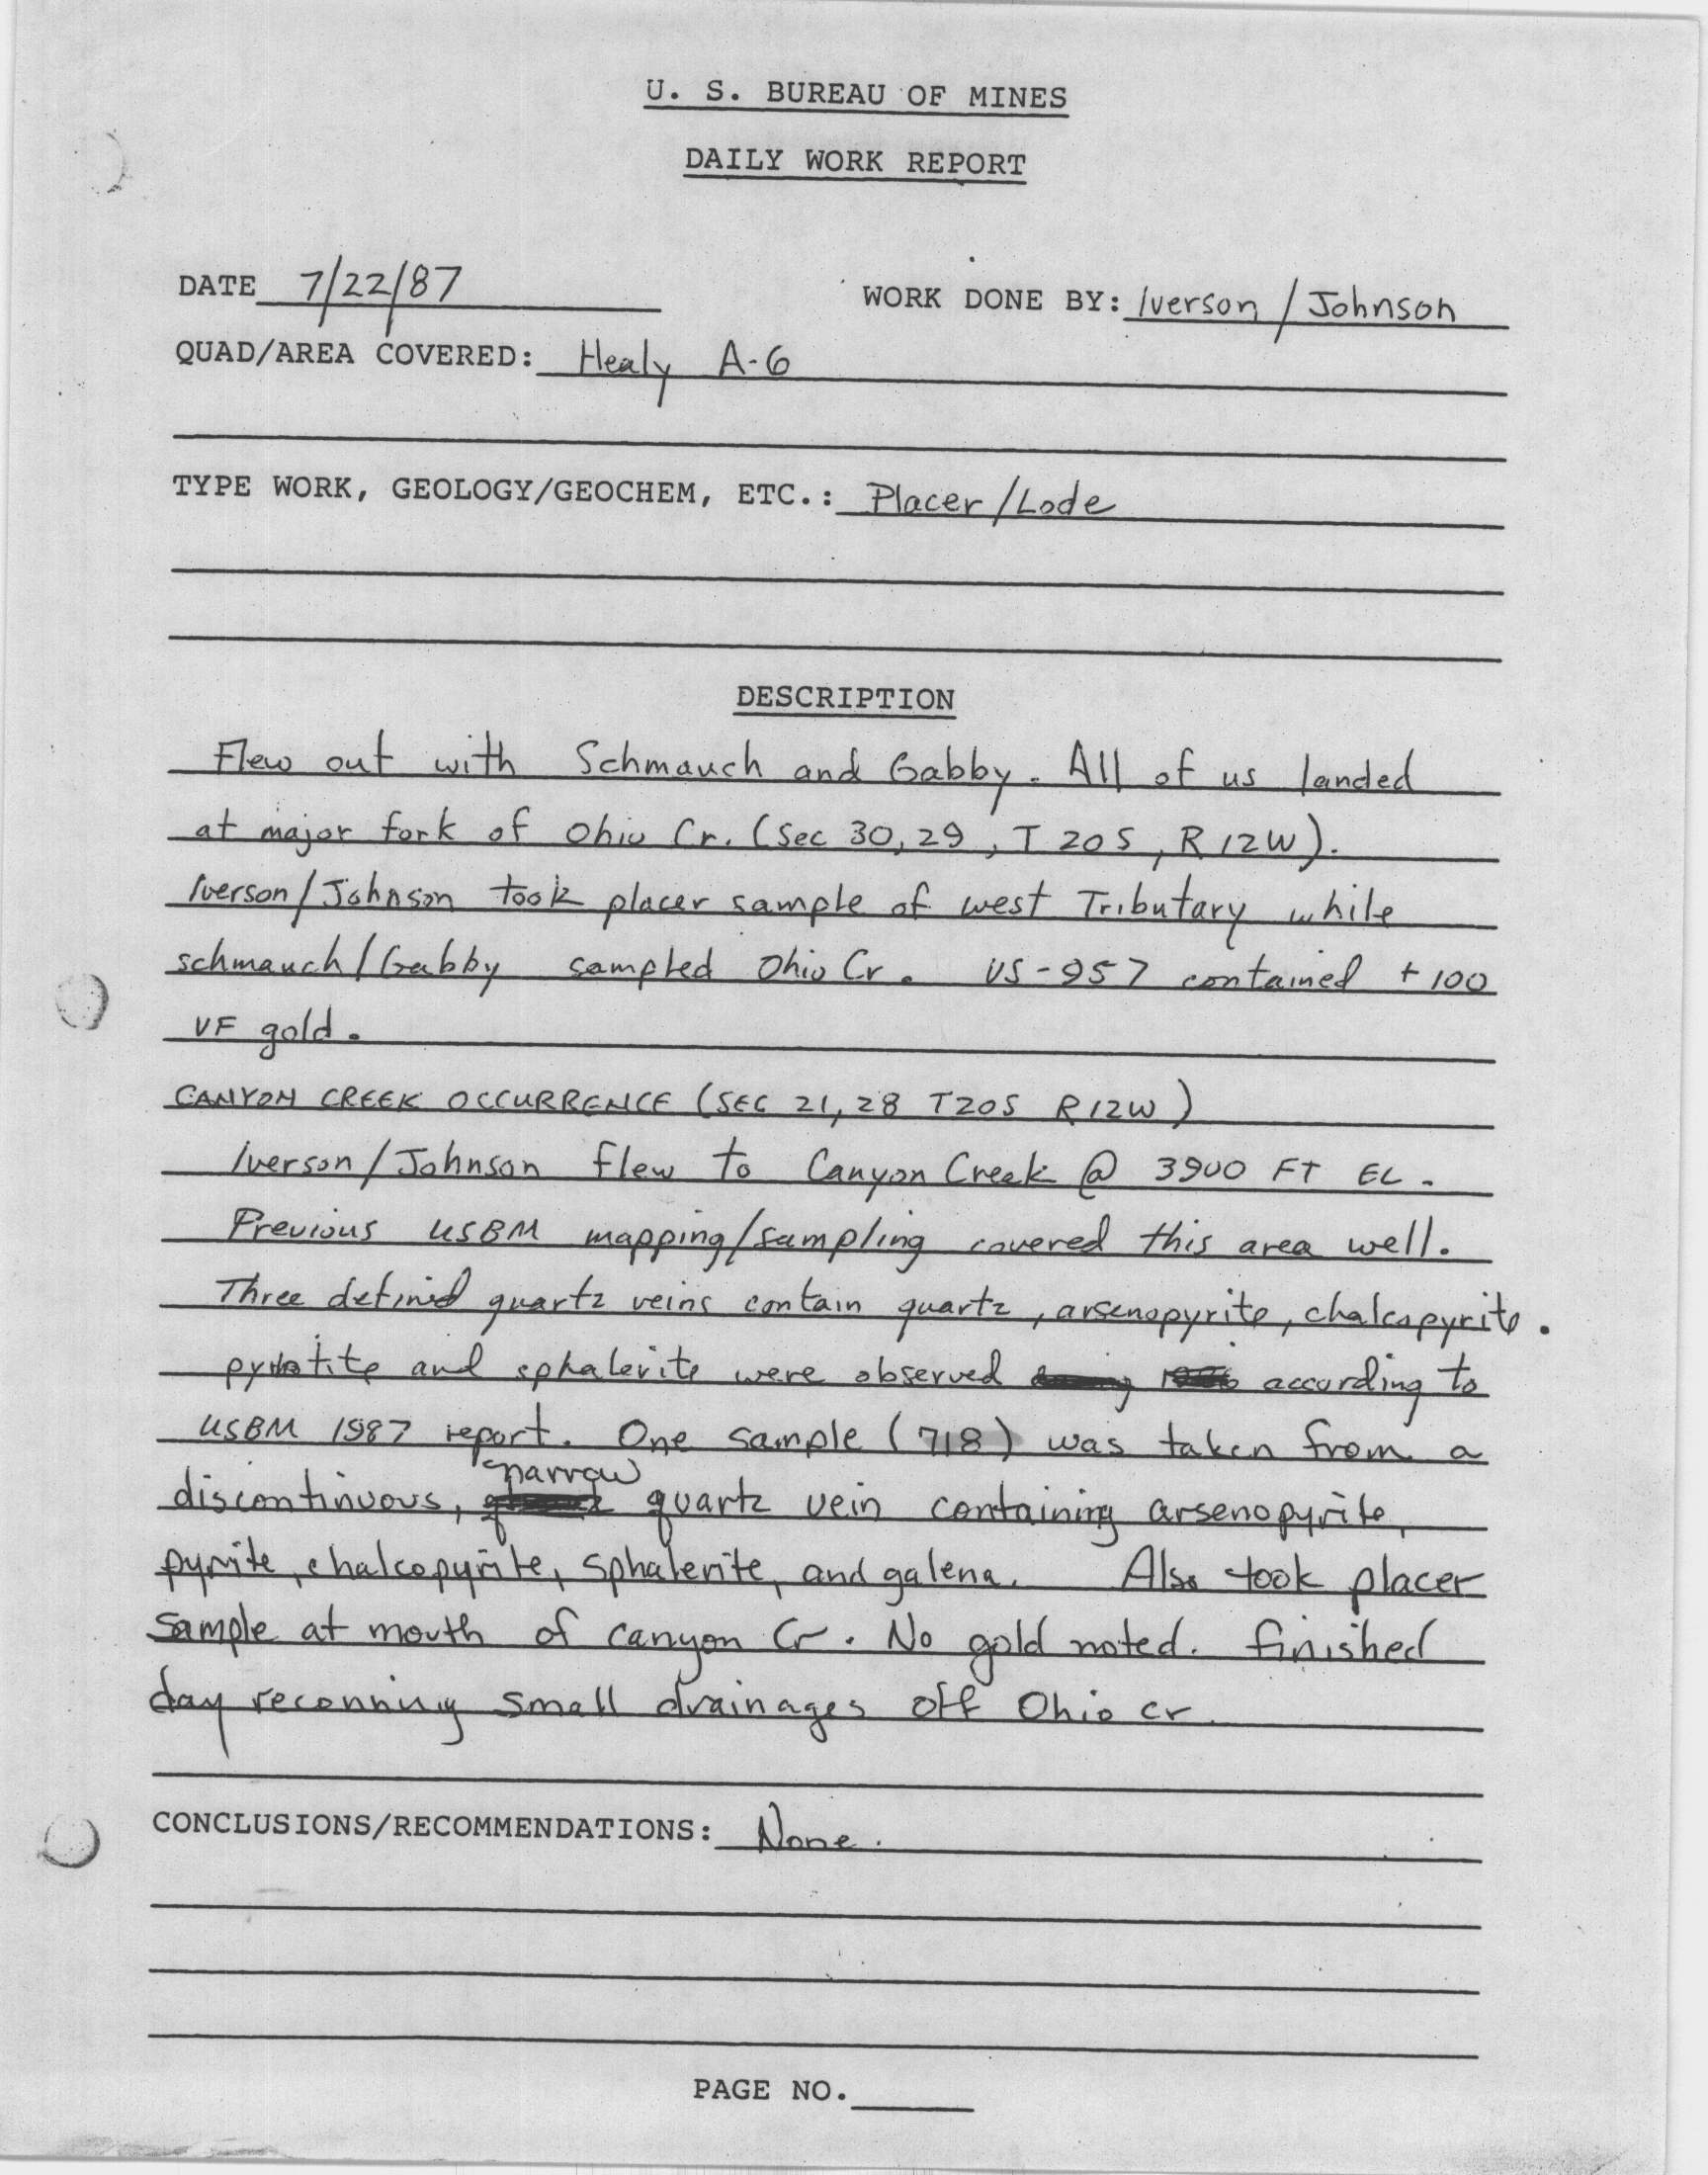 U. S. BUREAU OF MINES
DAILY WORK REPORT
DATE 7/22/87 WORK DONE BY: Iverson / Johnson
QUAD/AREA COVERED: Healy A-6
TYPE WORK, GEOLOGY/GEOCHEM, ETC.: Placer/Lode
DESCRIPTION
Flew out with Schmauch and Gabby. All of us landed
at major fork of Ohio Cr. (Sec 30, 29, T 20 S, R 12W).
Iverson/Johnson took placer sample of west Tributary while
schmauch/Gabby sampled Ohio Cr. US-957 contained +100
VF gold.
CANYON CREEK OCCURRENCE (SEC 21, 28 T20S R12W)
Iverson/Johnson flew to Canyon Creek @ 3900 FT EL.
Previous USBM mapping/sampling covered this area well.
Three defined quartz veins contain quartz, arsenopyrite, chalcopyrite.
and sphalerite were observed according to
USBM 1987 report. One sample (718) was taken from a
discontinuous, narrow quartz vein containing arsenopyrite,
pyrite, chalcopyrite, sphalerite, and galena. Also took placer
sample at mouth of canyon Cr. No gold noted. finished
day reconning small drainages off Ohio cr.
CONCLUSIONS/RECOMMENDATIONS: None.
PAGE NO.